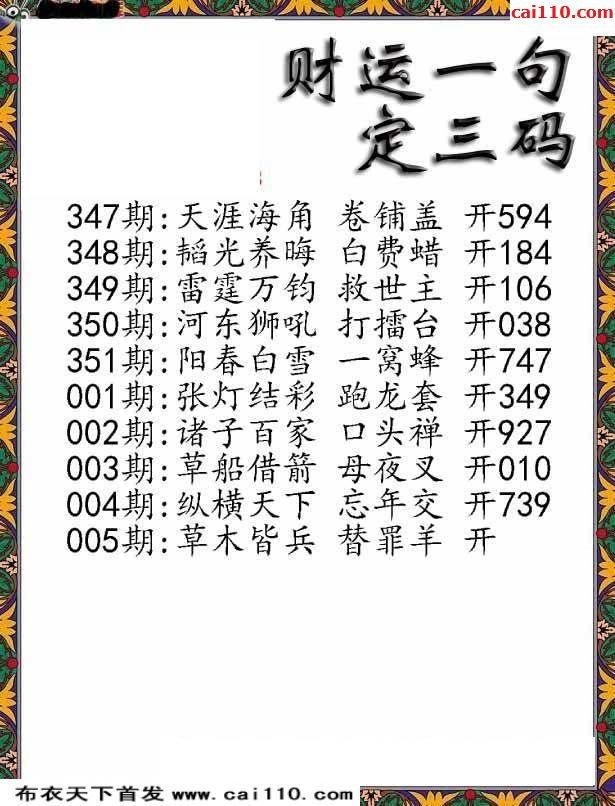 cai110.com
财运一句
定三码
347期:天涯海角 卷铺盖 开594
348期:韬光养晦 白费蜡 开184
349期:雷霆万钧 救世主 开106
350期:河东狮吼 打擂台 开038
351期:阳春白雪 一窝蜂 开747
001期:张灯结彩 跑龙套 开349
002期:诸子百家 口头禅 开927
003期:草船借箭 母夜叉 开010
004期:纵横天下 忘年交 开739
005期:草木皆兵 替罪羊 开
布衣天下首发 www.cai110.com